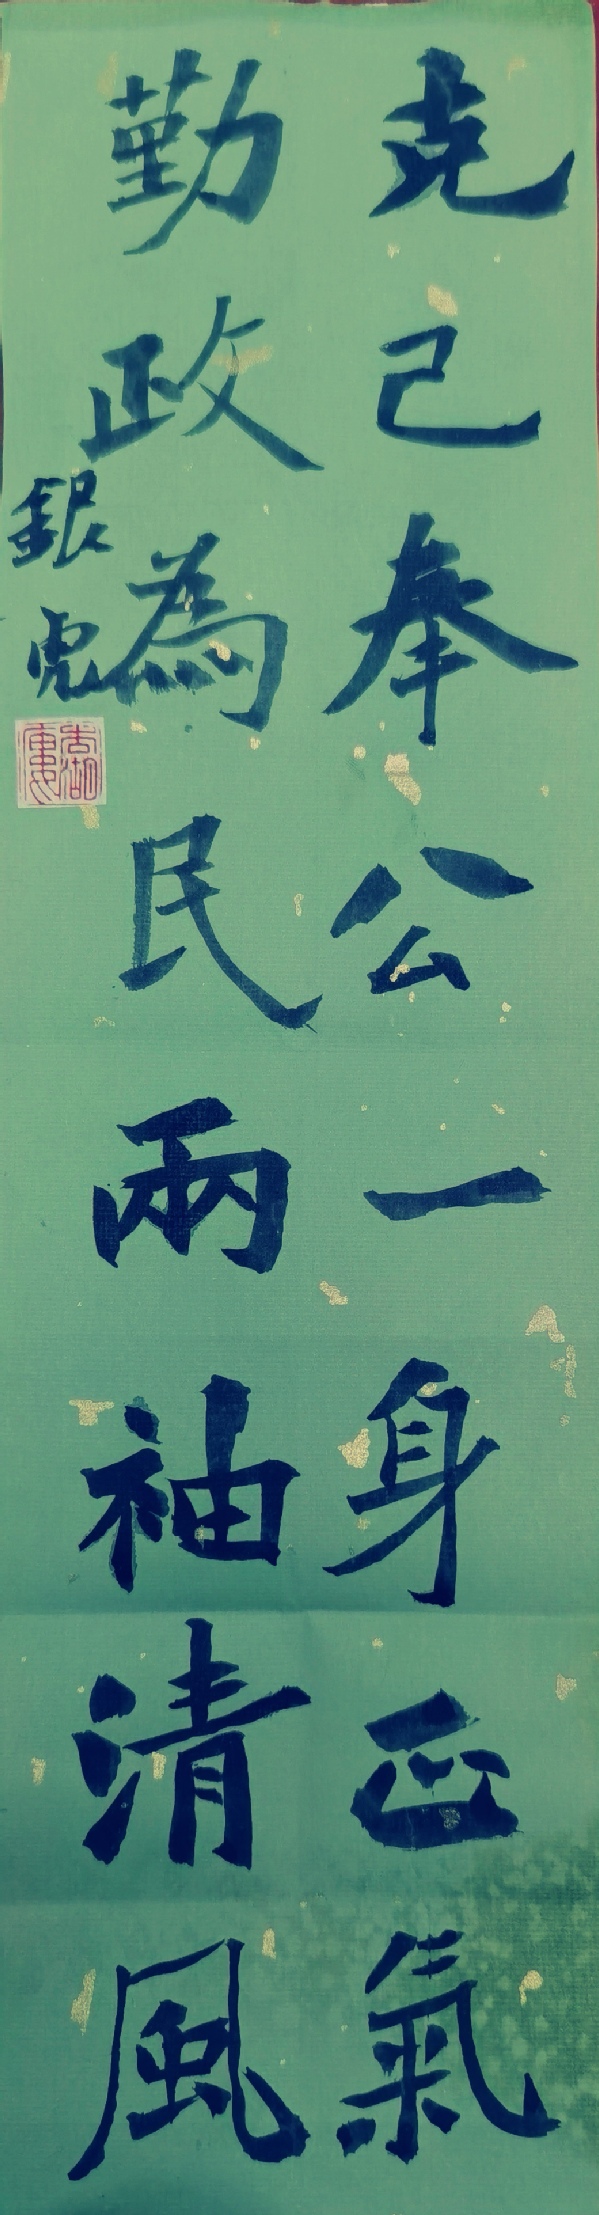 克己奉公一身正氣
勤政為民兩袖清風
銀虎